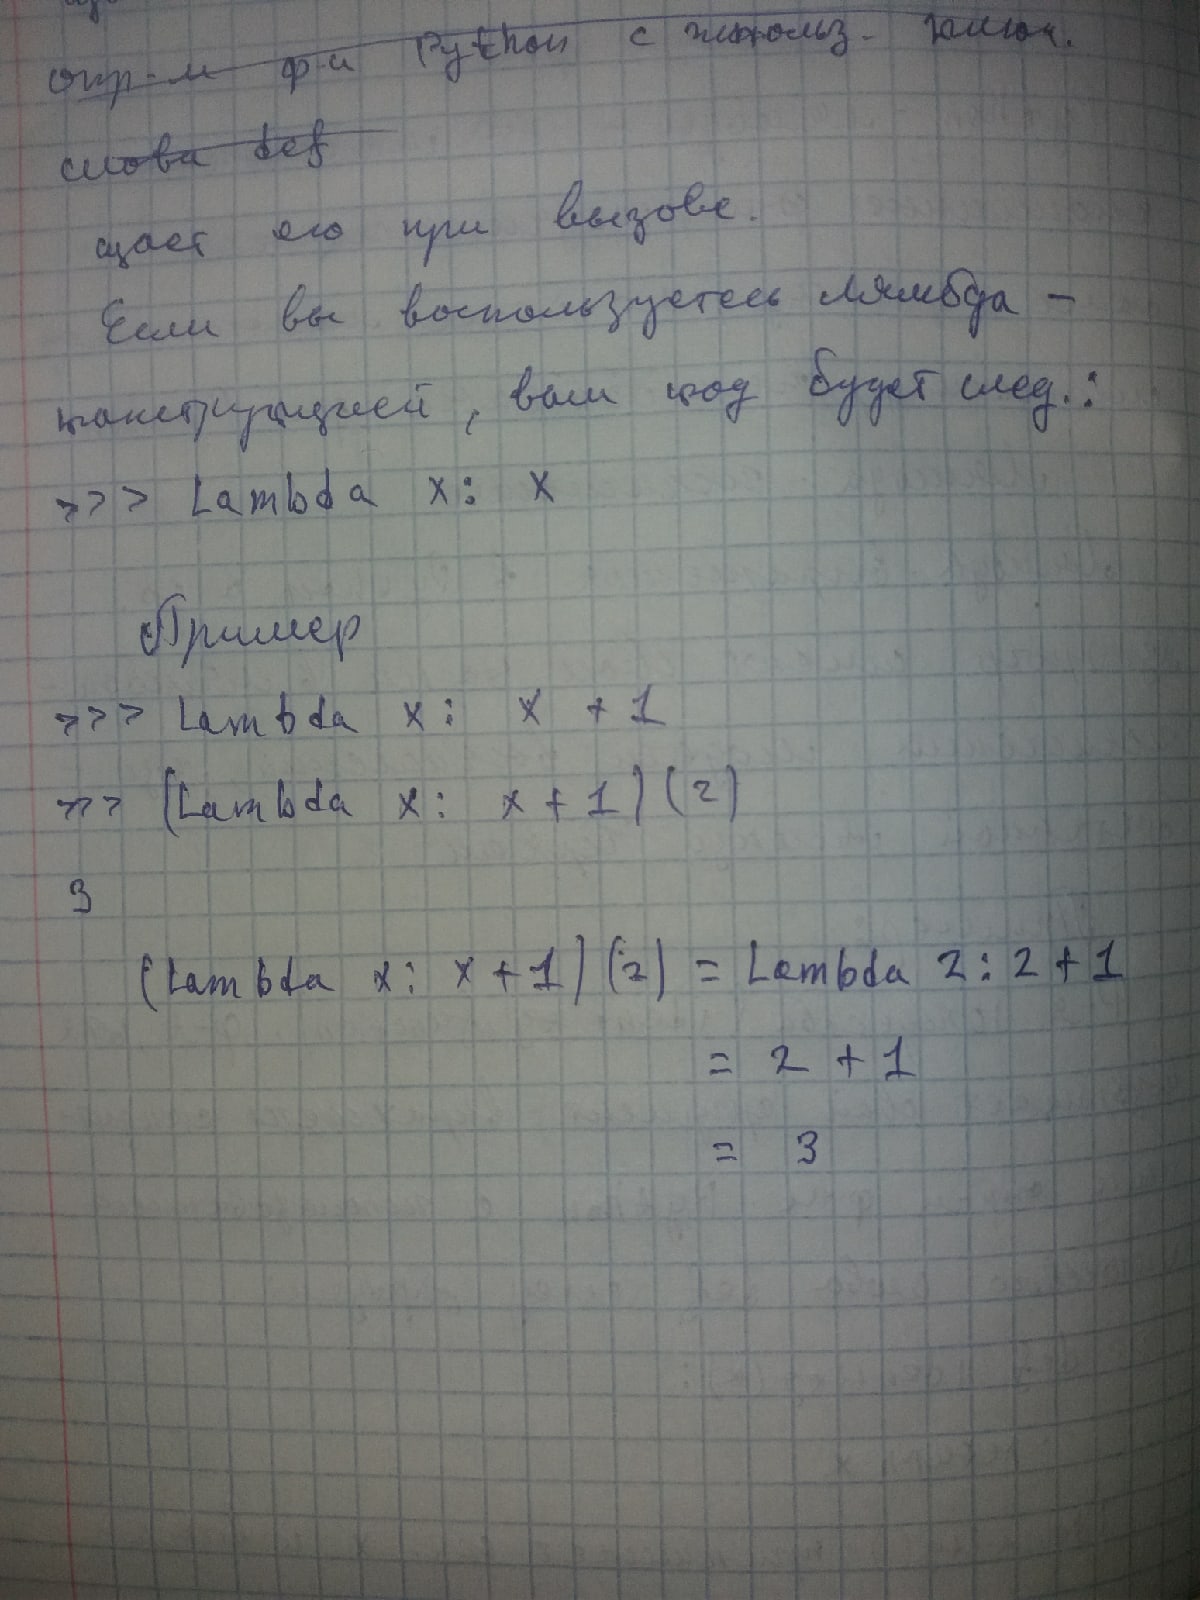 опр-м ф-и Python с использ. ключ.
слова def
щает его при вызове.
Если вы воспользуетесь лямбда -
конструкцией, ваш код будет след.:
>>> Lambda x: x
Пример
>>> Lambda x: x + 1
>>> (Lambda x: x + 1) (2)
3
(Lambda x: x + 1) (2) = Lambda 2: 2 + 1
= 2 + 1
= 3